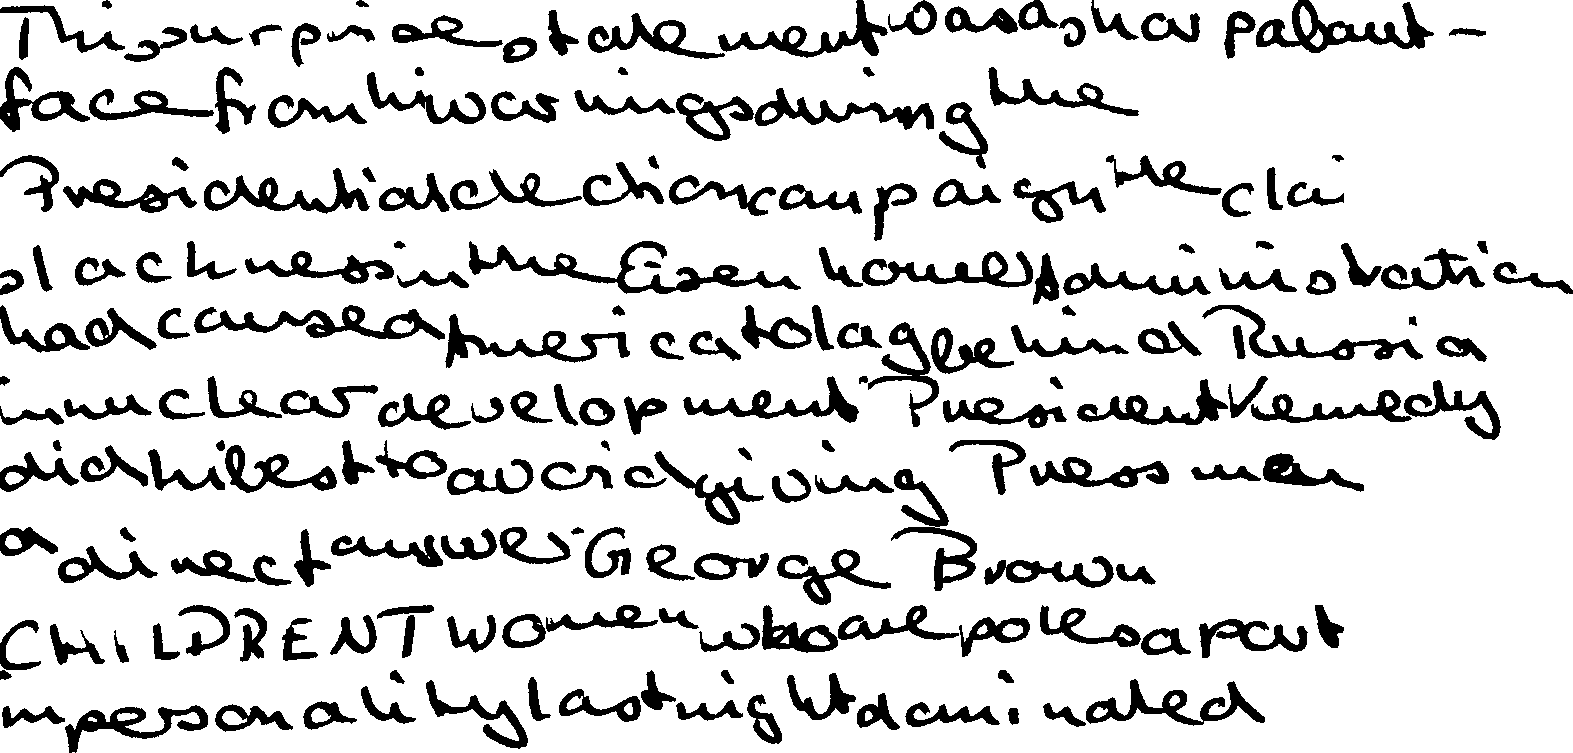 This surprise statement was a sharp about-
face from his warnings during the
Presidential election campaign the
slackness in the Eisenhower Administration
had caused America to lag behind Russia
in nuclear development President Kennedy
did his best to avoid giving Pressmen
a direct answer George Brown
CHILDREN TWO women who are poles apart
in personality last night dominated